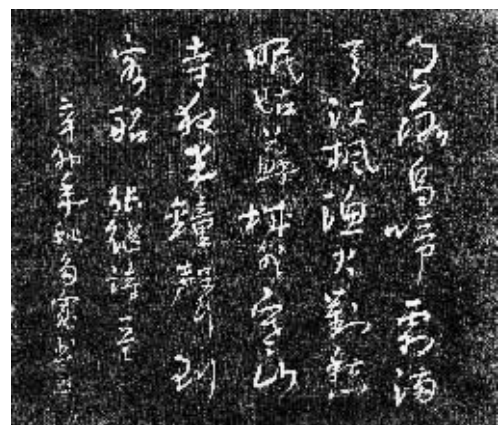 月落烏啼霜滿
天江楓漁火對愁
眠姑蘇城外寒山
寺夜半鐘聲到
客船 張繼詩一首
辛卯年秋